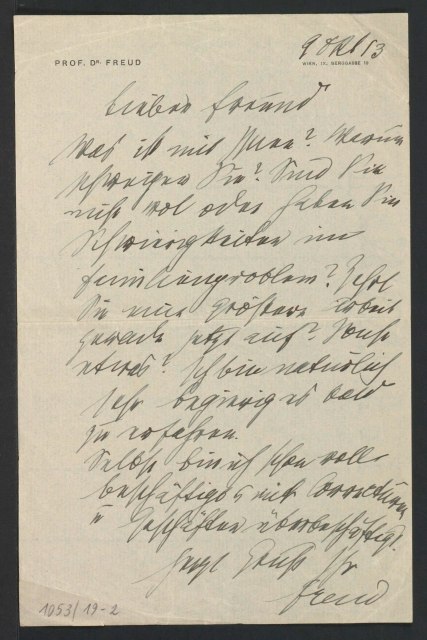 9 Okt 13
PROF. DR. FREUD
WIEN, IX., BERGGASSE 19
Lieber Freund
Was ist mit Ihnen? Warum
schweigen Sie? Sind Sie
nicht wol oder haben Sie
Schwierigkeiten im
Familienproblem?
Sie eine größere Arbeit
gerade jetzt auf? Sonst
etwas? Ich bin natürlich
sehr begierig es bald
zu erfahren.
Selbst bin ich schon voll
beschäftigt, mit Correcturen
u Geschäften überbeschäftigt.
Herzl Gruß Ihr
Freud
1053/19-2